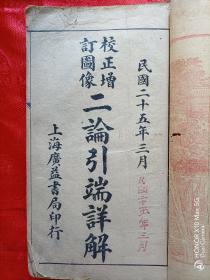 民國二十五年三月
校正增
訂圖像
二論引端詳解
上海廣益書局印行
HONOR X10 MAX 5G